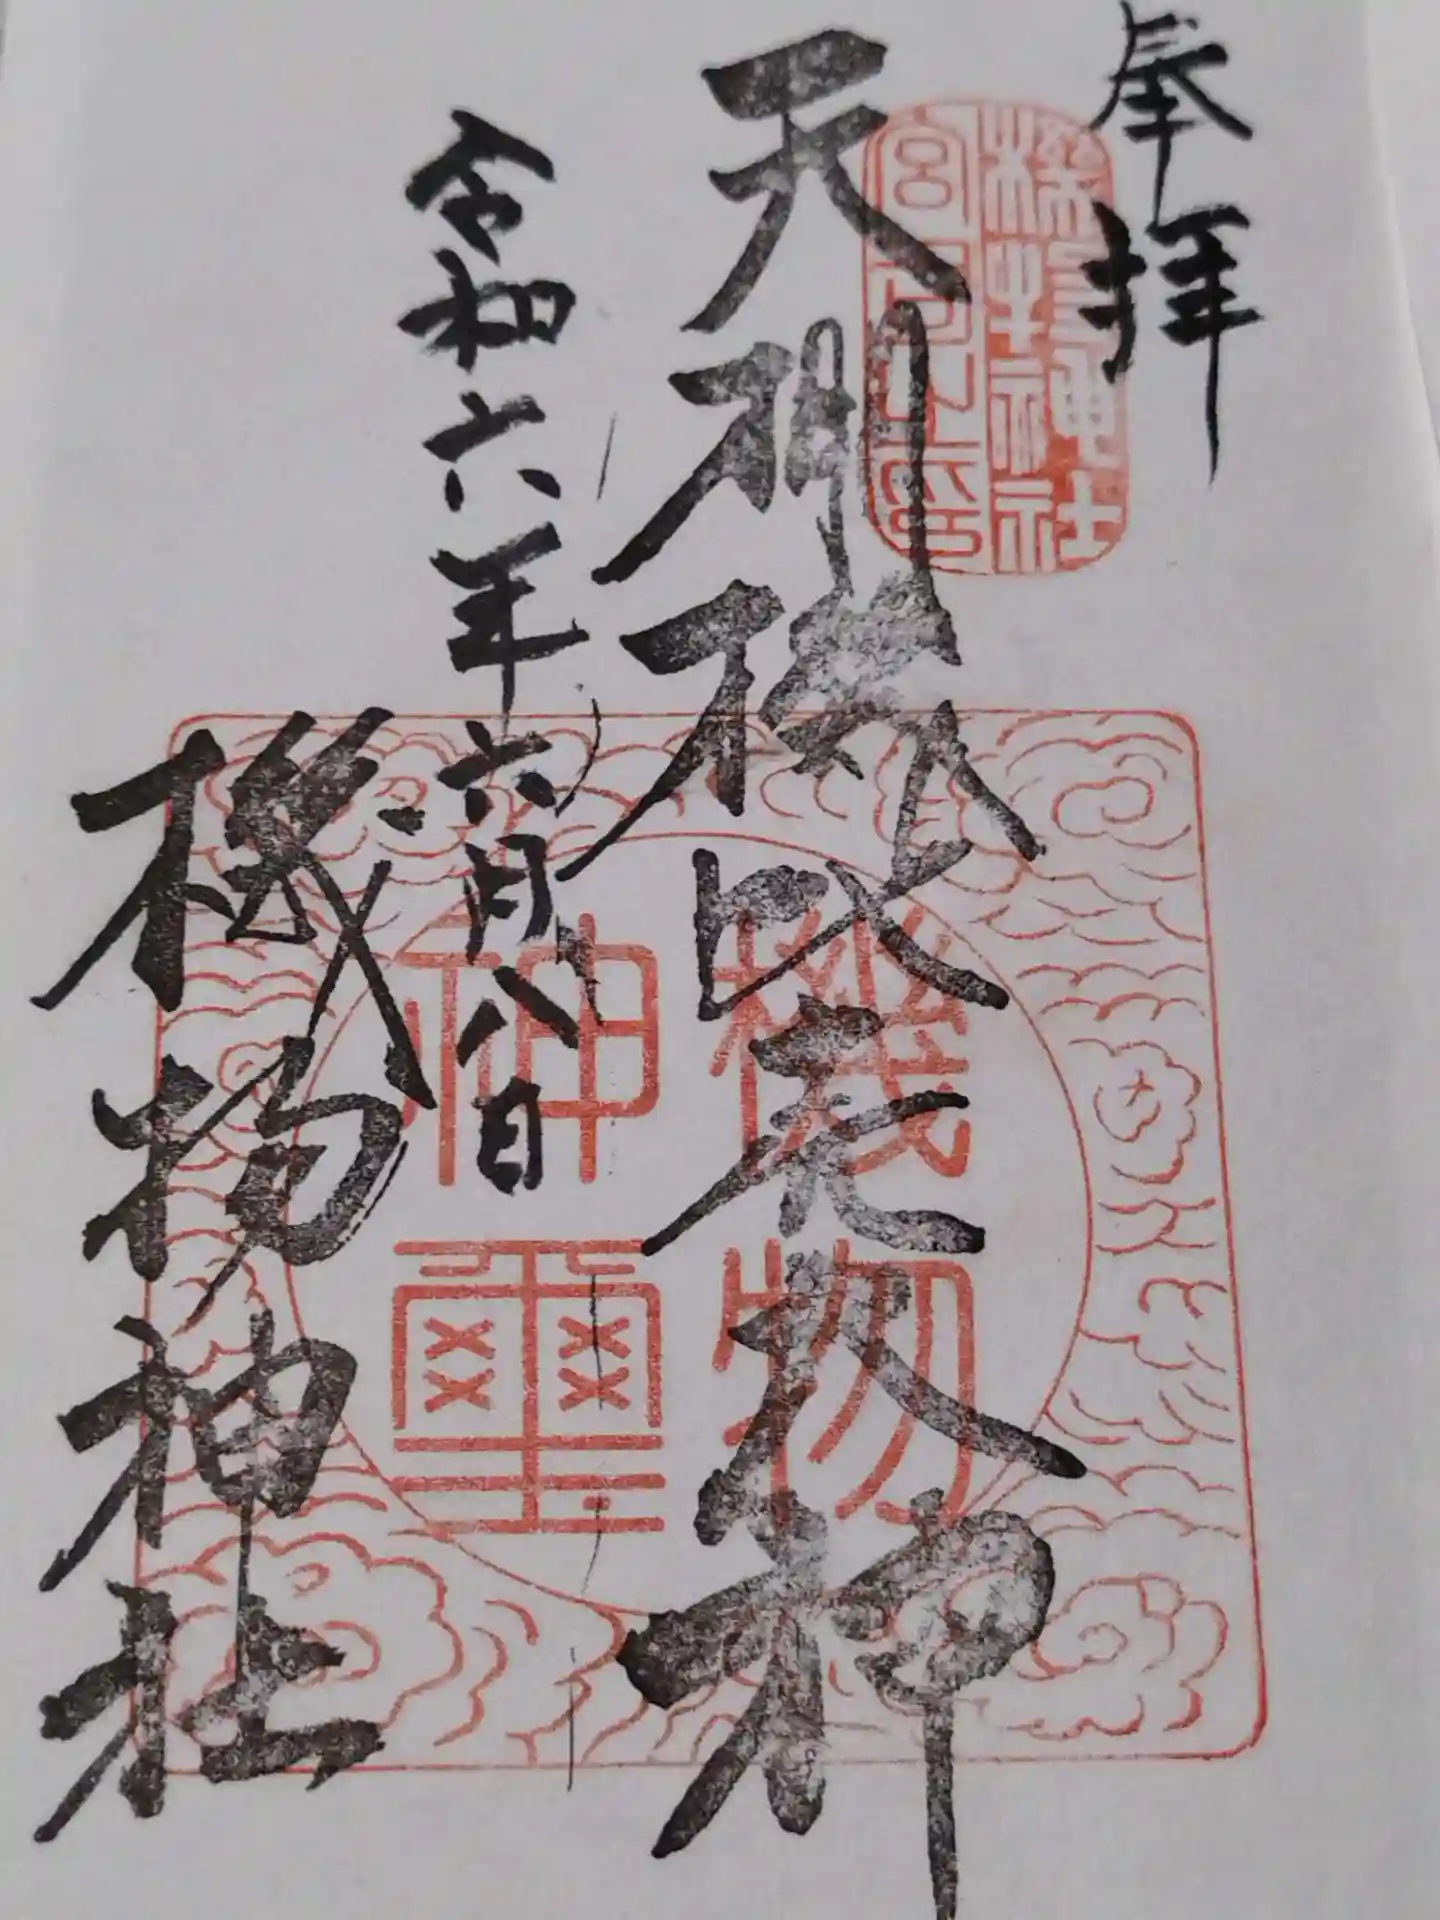 奉拝
天棚機比売大神
令和六年六月八日
機物神社
機物神社
宮司之印
機物
神璽